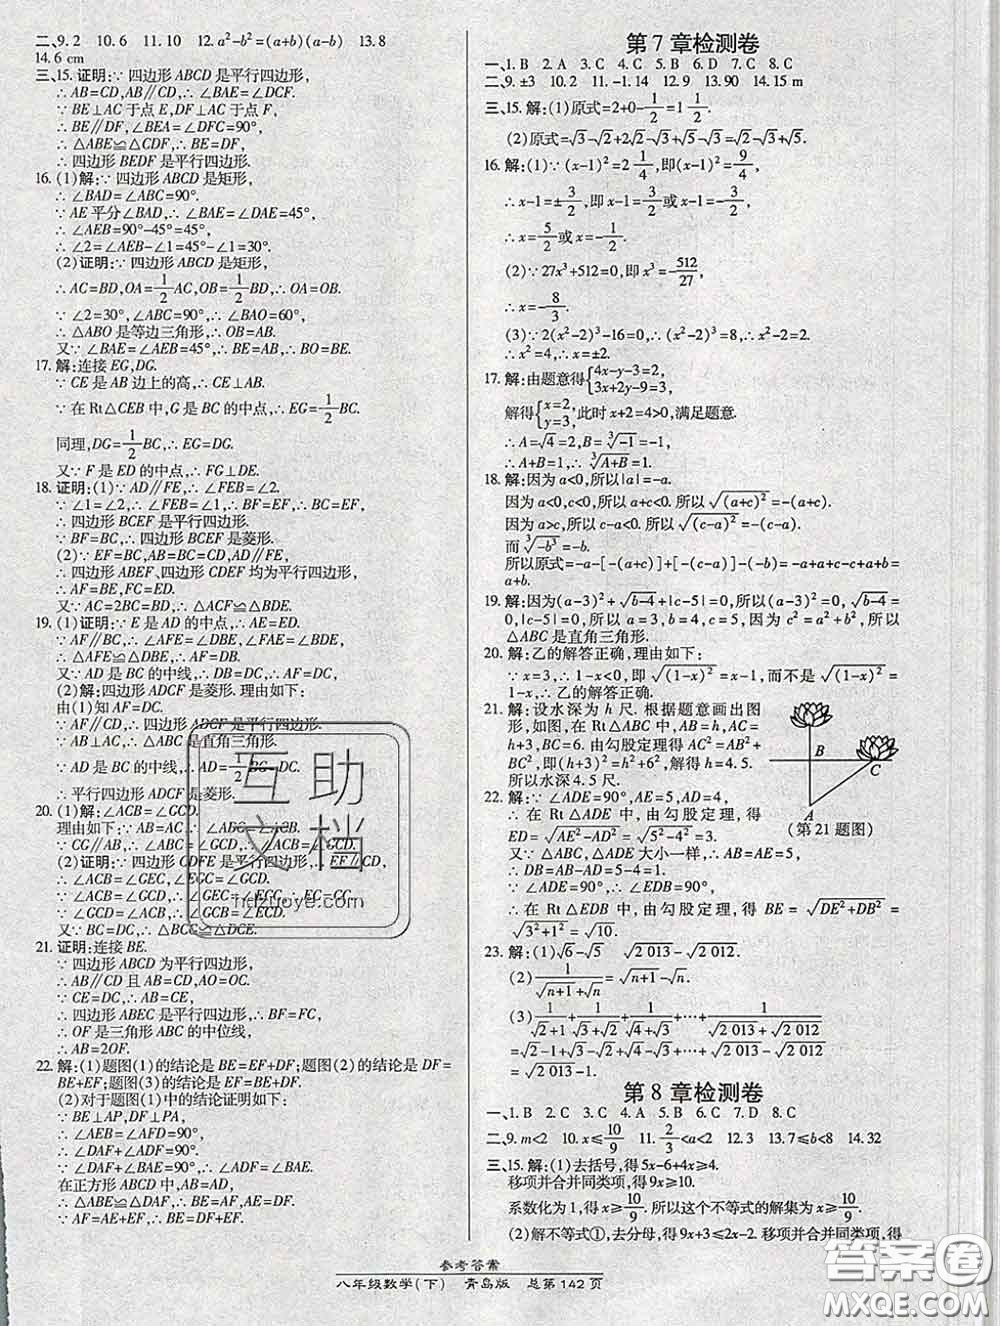 二、9. 2　10. 6　11. 10　12. a²-b²=(a+b)(a-b)　13. 8
14. 6 cm
三、15. 证明:∵ 四边形 ABCD 是平行四边形,
∴ AB=CD,AB∥CD,∴ ∠BAE=∠DCF.
∵ BE⊥AC 于点 E,DF⊥AC 于点 F,
∴ BE∥DF,∠BEA=∠DFC=90°,
∴ △ABE≌△CDF,∴ BE=DF,
∴ 四边形 BEDF 是平行四边形.
16. (1)解:∵ 四边形 ABCD 是矩形,
∴ ∠BAD=∠ABC=90°.
∵ AE 平分∠BAD,∴ ∠BAE=∠DAE=45°,
∴ ∠AEB=90°-45°=45°,
∴ ∠2=∠AEB-∠1=45°-∠1=30°.
(2)证明:∵ 四边形 ABCD 是矩形,
∴ AC=BD,OA=1/2 AC,OB=1/2 BD,∴ OA=OB.
∵ ∠2=30°,∠AEB=45°,∴ ∠BAO=60°,
∴ △ABO 是等边三角形,∴ OB=AB.
又∵ ∠BAE=∠AEB=45°,∴ AB=BE,∴ BO=BE.
17. 解:连接 EG,DG.
∵ CE 是 AB 边上的高,∴ CE⊥AB.
∵ 在 Rt△CEB 中,G 是 BC 的中点,∴ EG=1/2 BC.
同理,DG=1/2 BC,∴ EG=DG.
又∵ F 是 ED 的中点,∴ FG⊥DE.
18. 证明:(1)∵ AD∥FE,∴ ∠FEB=∠2.
∵ ∠1=∠2,∴ ∠FEB=∠1,∴ BF=EF,∴ BC=EF,
∴ 四边形 BCEF 是平行四边形.
∵ BF=BC,∴ 四边形 BCEF 是菱形.
(2)∵ EF=BC,AB=BC=CD,AD∥FE,
∴ 四边形 ABEF、四边形 CDEF 均为平行四边形,
∴ AF=BE,FC=ED.
又∵ AC=2BC=BD,∴ △ACF≌△BDE.
19. (1)证明:∵ E 是 AD 的中点,∴ AE=ED.
∵ AF∥BC,∴ ∠AFE=∠DBE,∠FAE=∠BDE,
∴ △AFE≌△DBE,∴ AF=DB.
又∵ AD 是 BC 的中线,∴ DB=DC,∴ AF=DC.
(2)解:四边形 ADCF 是菱形. 理由如下:
由(1)知 AF=DC.
∵ AF∥CD,∴ 四边形 ADCF 是平行四边形.
又∵ AB⊥AC,∴ △ABC 是直角三角形.
∵ AD 是 BC 的中线,∴ AD=1/2 BC=DC.
∴ 平行四边形 ADCF 是菱形.
20. (1)解:∠ACB=∠GCD.
理由如下:∵ AB=AC,∴ ∠ABC=∠ACB.
∵ CG∥AB,∴ ∠ABC=∠GCD,∴ ∠ACB=∠GCD.
(2)证明:∵ 四边形 CDFE 是平行四边形,∴ EF∥CD,
∴ ∠ACB=∠GEC,∠EGC=∠GCD.
∵ ∠ACB=∠GCD,∴ ∠GEC=∠EGC,∴ EC=GC.
∵ ∠GCD=∠ACB,∴ ∠GCB=∠ECD.
∵ BC=DC,∴ △BCG≌△DCE.
21. 证明:连接 BE.
∵ 四边形 ABCD 为平行四边形,
∴ AB∥CD 且 AB=CD,AO=OC.
∵ CE=DC,∴ AB=CE,
∴ 四边形 ABEC 是平行四边形,∴ BF=FC,
∴ OF 是三角形 ABC 的中位线,
∴ AB=2OF.
22. 解:(1)题图(1)的结论是 BE=EF+DF;题图(2)的结论是 DF=
BE+EF;题图(3)的结论是 EF=BE+DF.
(2)对于题图(1)中的结论证明如下:
∵ BE⊥AP,DF⊥PA,
∴ ∠BEA=∠AFD=90°,
∴ ∠DAF+∠ADF=90°.
∵ ∠BAE+∠DAF=90°,∴ ∠BAE=∠ADF.
在正方形 ABCD 中,AB=AD,
∴ △ABE≌△DAF,∴ BE=AF,AE=DF.
∵ AF=AE+EF,∴ BE=DF+EF.
第 7 章检测卷
一、1. B　2. A　3. C　4. C　5. B　6. D　7. C　8. C
二、9. ±3　10. 2　11. -1.14　12. 9　13. 90　14. 15 m
三、15. 解:(1)原式=2+0-1/2=1 1/2.
(2)原式=√3-√2+2√2-√3+√5-√3=√2-√3+√5.
16. 解:(1)∵ (x-1)²=2 1/4,即(x-1)²=9/4,
∴ x-1=±3/2,即 x-1=3/2或 x-1=-3/2,
∴ x=5/2或 x=-1/2.
(2)∵ 27x³+512=0,即 x³=-512/27,
∴ x=-8/3.
(3)∵ 2(x²-2)³-16=0,∴ (x²-2)³=8,∴ x²-2=2,
∴ x²=4,∴ x=±2.
17. 解:由题意得{4x-y-3=2, 3x+2y-9=3,
解得{x=2, y=3,此时 x+2=4>0,满足题意.
∴ A=√4=2,B=³√-1=-1,
∴ A+B=1,∴ ³√A+B=1.
18. 解:因为 a<0,所以|a|=-a.
因为 a<0,c<0,所以 a+c<0. 所以 √(a+c)²=-(a+c).
因为 a>c,所以 c-a<0. 所以 √(c-a)²=-(c-a).
而³√-b³=-b.
所以原式=-a-[-(a+c)]+[-(c-a)]-(-b)=-a+a+c-c+a+b=
a+b.
19. 解:因为(a-3)²+√b-4+|c-5|=0,所以(a-3)²=0,√b-4=
0,|c-5|=0,所以 a=3,b=4,c=5,因为 c²=a²+b²,所以
△ABC 是直角三角形.
20. 解:乙的解答正确,理由如下:
∵ x=3,∴ 1-x<0,即 √(1-x)²=x-1,而不是 √(1-x)²=
1-x,∴ 乙的解答正确.
21. 解:设水深为 h 尺. 根据题意画出图
形,如图,在 Rt△ABC 中,AB=h,AC=
h+3,BC=6. 由勾股定理得 AC²=AB²+
BC²,即(h+3)²=h²+6²,解得 h=4.5.
所以水深 4.5 尺.
B
C
A
(第 21 题图)
22. 解:∵ ∠ADE=90°,AE=5,AD=4,
∴ 在 Rt△ADE 中,由勾股定理,得
ED=√AE²-AD²=√5²-4²=3.
又∵ △ABC,△ADE 大小一样,∴ AB=AE=5,
∴ DB=AB-AD=5-4=1.
∵ ∠ADE=90°,∴ ∠EDB=90°,
∴ 在 Rt△EDB 中,由勾股定理,得 BE=√DE²+DB²=
√3²+1²=√10.
23. 解:(1)√6-√5　√2 013-√2 012
(2)1/(√n+1+√n)=√n+1-√n
(3)1/(√2+1)+1/(√3+√2)+1/(√4+√3)+…+1/(√2 013+√2 012)
=√2-1+√3-√2+√4-√3+…+√2 013-√2 012
=√2 013-1.
第 8 章检测卷
一、1. B　2. C　3. C　4. A　5. B　6. C　7. D　8. C
二、9. m<2　10. x≤10/9　11. 2/3<a<2　12. 3　13. 7≤b<8　14. 32
三、15. 解:(1)去括号,得 5x-6+4x≥4.
移项并合并同类项,得 9x≥10.
系数化为 1,得 x≥10/9. 所以这个不等式的解集为 x≥10/9.
(2)解不等式①,去分母,得 9x+3≤2x-2. 移项并合并同类项,得
参考答案
八年级数学(下)　青岛版　总第 142 页
互助文档
hdzuoye.com
答案圈
MXQE.COM